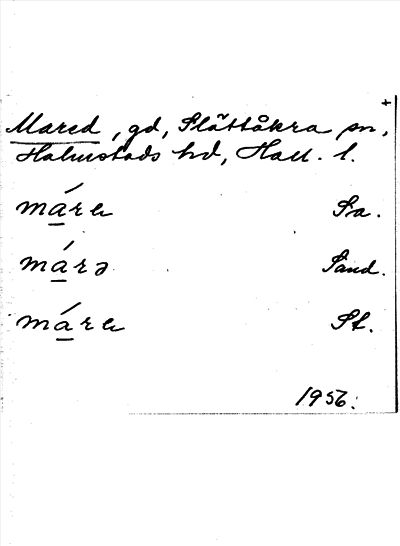 +
Mared, gd, Slättåkra sn,
Halmstads hd, Hall. l.
márɐ Sa.
márə Sand.
márɐ St.
1956.